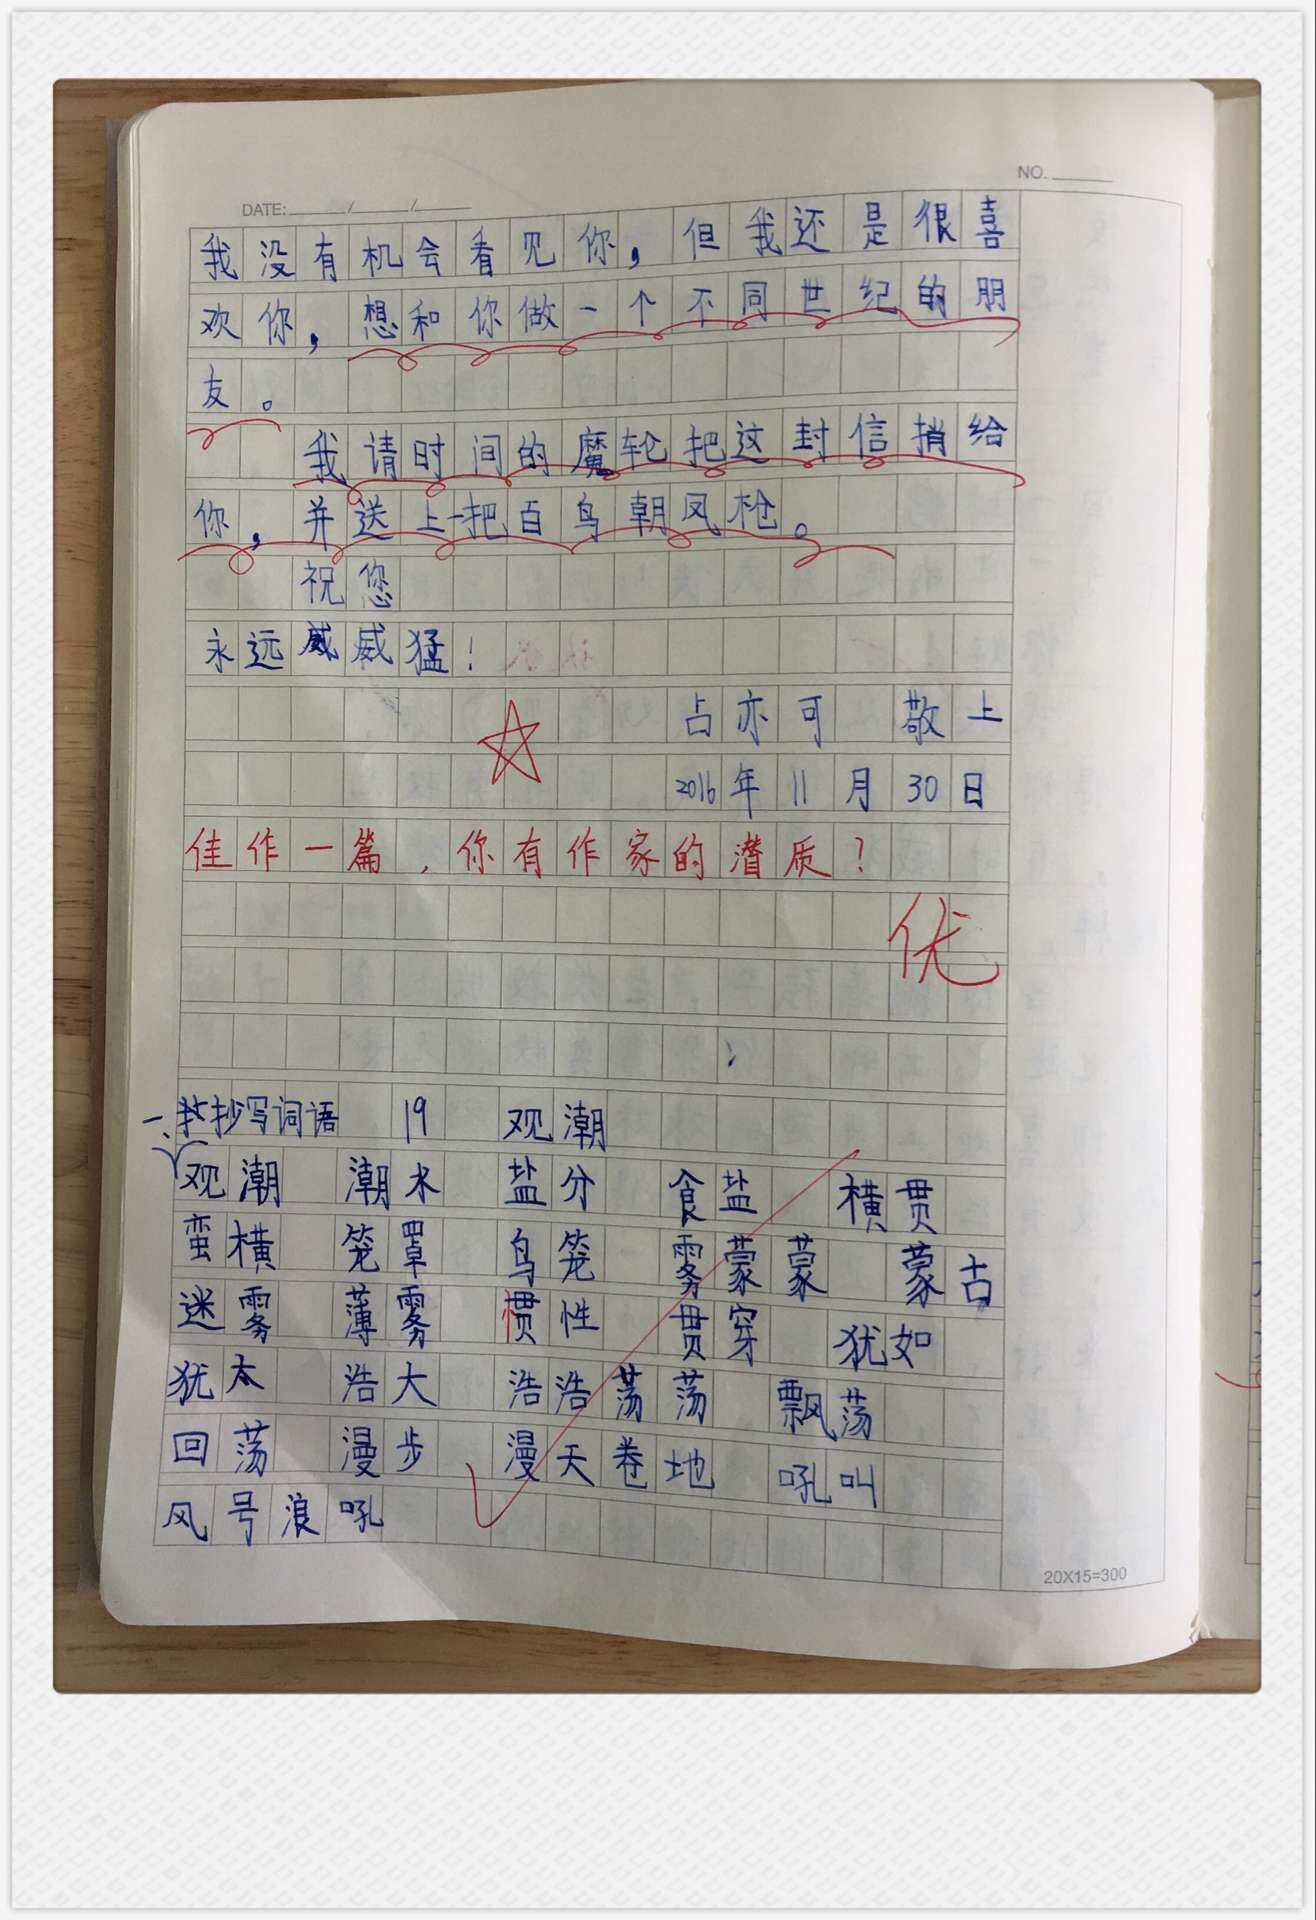 NO.
DATE: / /
我没有机会看见你，但我还是很喜
欢你，想和你做一个不同世纪的朋
友。
我请时间的魔轮把这封信捎给
你，并送上一把百鸟朝凤枪。
祝您
永远威威猛！
占亦可 敬上
2016年11月30日
佳作一篇，你有作家的潜质？
优
一、抄写词语 19 观潮
观潮 潮水 盐分 食盐 横贯
蛮横 笼罩 鸟笼 雾蒙蒙 蒙古
迷雾 薄雾 惯性 贯穿 犹如
犹太 浩大 浩浩荡荡 飘荡
回荡 漫步 漫天卷地 吼叫
风号浪吼
20X15=300